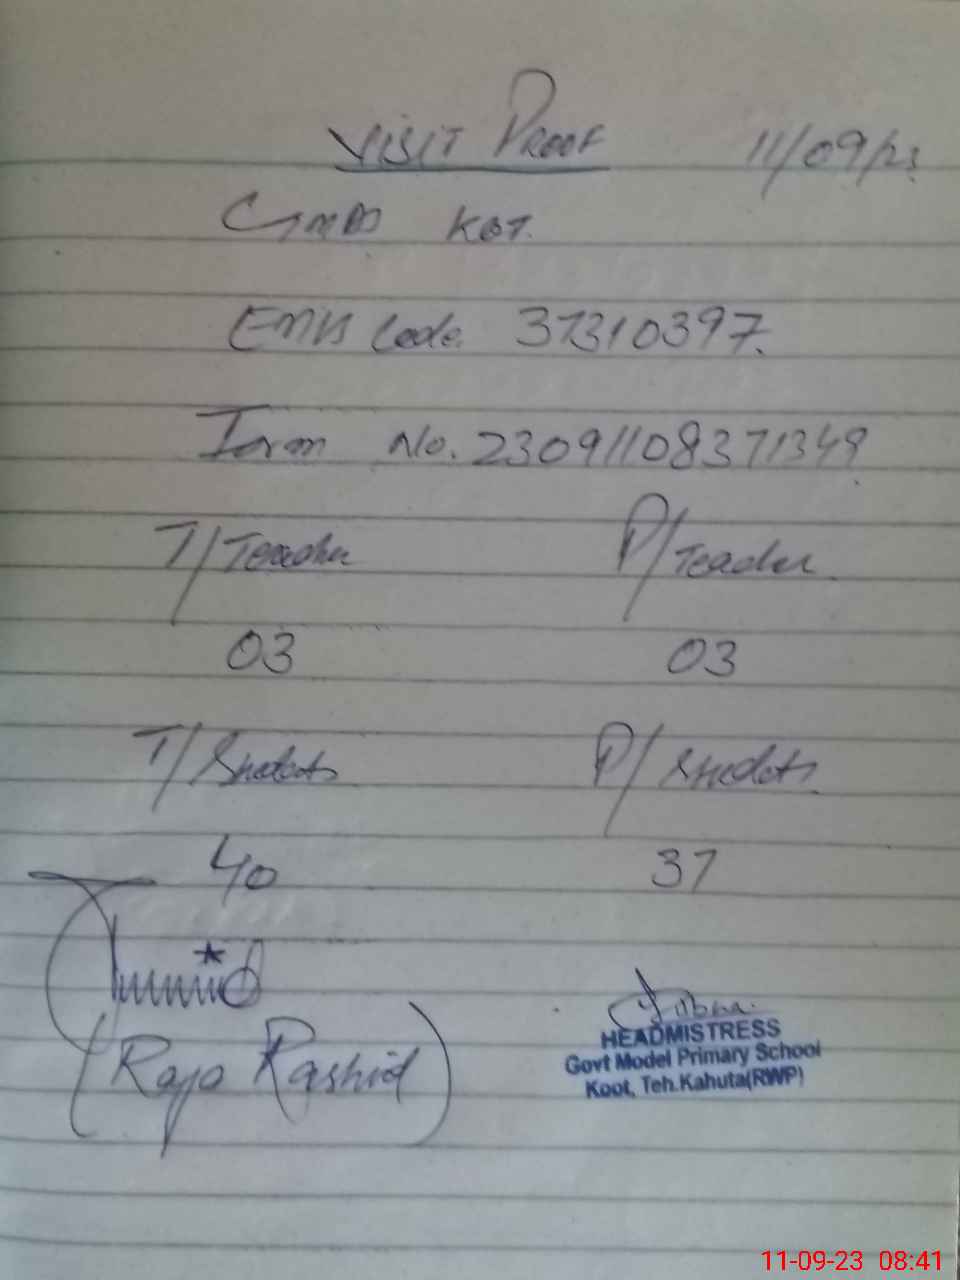 VISIT PROOF 11/09/23
GMPS KOT.
EMIS Code. 37310397.
Form No. 23091108371349
T/Teacher P/Teacher.
03 03
T/Students P/Students.
40 37
(Raja Rashid)
HEADMISTRESS
Govt Model Primary School
Koot, Teh.Kahuta(RWP)
11-09-23 08:41